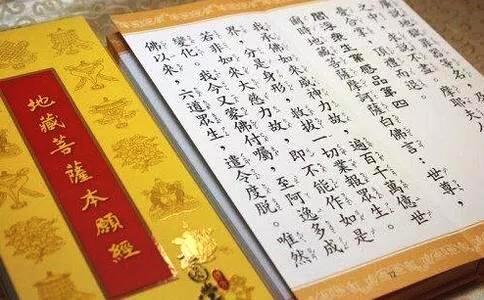 地藏菩薩本願經
之中，求說不盡。摩耶夫
憂合掌，頂禮而退。
閻浮眾生業感品第四
爾時地藏菩薩摩訶薩白佛言：世尊，
我承佛如來威神力故，遍百千萬億世
界，分是身形，救拔一切業報眾生。
若非如來大慈力故，即不能作如是
變化。我今又蒙佛付囑，至阿逸多成
佛以來，六道眾生，遣令度脫。唯然